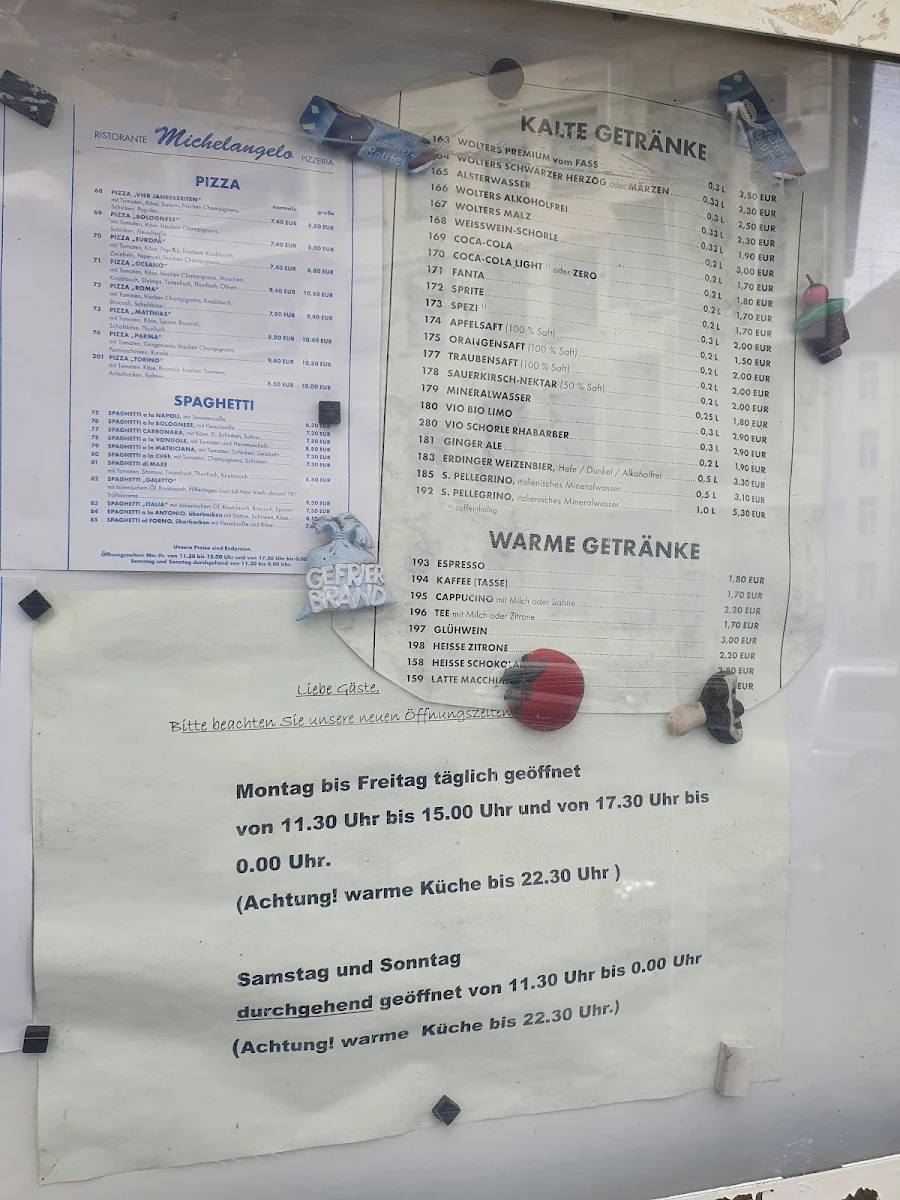 RISTORANTE Michelangelo PIZZERIA
PIZZA
normale große
68 PIZZA „VIER JAHRESZEITEN"
mit Tomaten, Käse, Salami, frischen Champignons,
Schinken, Paprika 7,40 EUR 8,80 EUR
69 PIZZA „BOLOGNESE"
mit Tomaten, Käse, frischen Champignons,
Schinken, Fleischsoße 7,40 EUR 8,80 EUR
70 PIZZA „EUROPA"
mit Tomaten, Käse, Paprika, frischem Knoblauch,
Zwiebeln, Peperoni, frischen Champignons 7,40 EUR 8,80 EUR
71 PIZZA „OCEANO"
mit Tomaten, Käse, frischen Champignons, Muscheln,
Knoblauch, Shrimps, Tintenfisch, Thunfisch, Oliven 9,40 EUR 10,80 EUR
72 PIZZA „ROMA"
mit Tomaten, frischen Champignons, Knoblauch,
Broccoli, Schafskäse 7,80 EUR 9,40 EUR
73 PIZZA „MATTHIAS"
mit Tomaten, Käse, Spinat, Broccoli,
Schafskäse, Thunfisch 8,80 EUR 10,40 EUR
74 PIZZA „PARMA"
mit Tomaten, Gorgonzola, frischen Champignons,
Parmaschinken, Rucola 9,40 EUR 10,80 EUR
301 PIZZA „TORINO"
mit Tomaten, Käse, Broccoli, frischen Tomaten,
Artischocken, 8,50 EUR 10,00 EUR
SPAGHETTI
75 SPAGHETTI a la NAPOLI, mit Tomatensoße 6,30 EUR
76 SPAGHETTI a la BOLOGNESE, mit Fleischsoße 7,30 EUR
77 SPAGHETTI CARBONARA, mit Käse, Ei, Schinken, Sahne 7,80 EUR
78 SPAGHETTI a la VONGOLE, mit Tomaten und Herzmuscheln 8,80 EUR
79 SPAGHETTI a la MATRICIANA, mit Tomaten, Schinken, Zwiebeln 7,30 EUR
80 SPAGHETTI a la CHEF, mit Tomaten, Champignons, Schinken 7,30 EUR
81 SPAGHETTI di MARE
mit Tomaten, Shrimps, Tintenfisch, Thunfisch, Knoblauch 8,80 EUR
82 SPAGHETTI „GALETTO"
mit italienischem Öl, Knoblauch, Pfifferlingen (von Juli-Nov. frisch, danach TK)
Trüffelcreme 9,30 EUR
83 SPAGHETTI „ITALIA" mit italienischem Öl, Knoblauch, Broccoli, Spinat
84 SPAGHETTI a la ANTONIO, überbacken mit Sahne, Schinken, Käse
85 SPAGHETTI al FORNO, überbacken mit Fleischsoße und Käse
Unsere Preise sind Endpreise.
Öffnungszeiten: Mo.-Fr. von 11.30 bis 15.00 Uhr und von 17.30 Uhr bis 0.00
Samstag und Sonntag durchgehend von 11.30 bis 0.00 Uhr
KALTE GETRÄNKE
163 WOLTERS PREMIUM vom FASS 0,3 L 2,50 EUR
WOLTERS SCHWARZER HERZOG oder MÄRZEN 0,33 L 2,30 EUR
165 ALSTERWASSER 0,3 L 2,50 EUR
166 WOLTERS ALKOHOLFREI 0,33 L 2,30 EUR
167 WOLTERS MALZ 0,33 L 1,90 EUR
168 WEISSWEIN-SCHORLE 0,2 L 3,00 EUR
169 COCA-COLA 0,2 L 1,70 EUR
170 COCA-COLA LIGHT oder ZERO 0,2 L 1,80 EUR
171 FANTA 0,2 L 1,70 EUR
172 SPRITE 0,2 L 1,70 EUR
173 SPEZI 0,3 L 2,00 EUR
174 APFELSAFT (100 % Saft) 0,2 L 1,50 EUR
175 ORAINGENSAFT (100 % Saft) 0,2 L 2,00 EUR
177 TRAUBENSAFT (100 % Saft) 0,2 L 2,00 EUR
178 SAUERKIRSCH-NEKTAR (50 % Saft) 0,2 L 2,00 EUR
179 MINERALWASSER 0,25 L 1,80 EUR
180 VIO BIO LIMO 0,3 L 2,90 EUR
280 VIO SCHORLE RHABARBER 0,3 L 2,90 EUR
181 GINGER ALE 0,2 L 1,90 EUR
183 ERDINGER WEIZENBIER, Hefe / Dunkel / Alkoholfrei 0,5 L 3,30 EUR
185 S. PELLEGRINO, italienisches Mineralwasser 0,5 L 3,10 EUR
192 S. PELLEGRINO, italienisches Mineralwasser 1,0 L 5,30 EUR
= coffeinhaltig
WARME GETRÄNKE
193 ESPRESSO 1,80 EUR
194 KAFFEE (TASSE) 1,70 EUR
195 CAPPUCINO mit Milch oder Sahne 2,20 EUR
196 TEE mit Milch oder Zitrone 1,70 EUR
197 GLÜHWEIN 3,00 EUR
198 HEISSE ZITRONE 2,20 EUR
158 HEISSE SCHOKOLA 2,80 EUR
159 LATTE MACCHIA EUR
GEFRIER
BRAND
Liebe Gäste,
Bitte beachten Sie unsere neuen Öffnungszeiten
Montag bis Freitag täglich geöffnet
von 11.30 Uhr bis 15.00 Uhr und von 17.30 Uhr bis
0.00 Uhr.
(Achtung! warme Küche bis 22.30 Uhr )
Samstag und Sonntag
durchgehend geöffnet von 11.30 Uhr bis 0.00 Uhr
(Achtung! warme Küche bis 22.30 Uhr.)